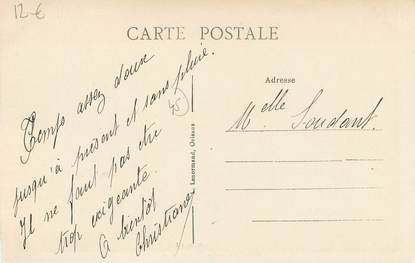 12-€
CARTE POSTALE
Temps assez doux
jusqu'à présent et sans pluie.
Il ne faut pas être
trop exigeante.
A bientôt
Christiane
45
Lenormand, Orléans
Adresse
Melle Soudant.